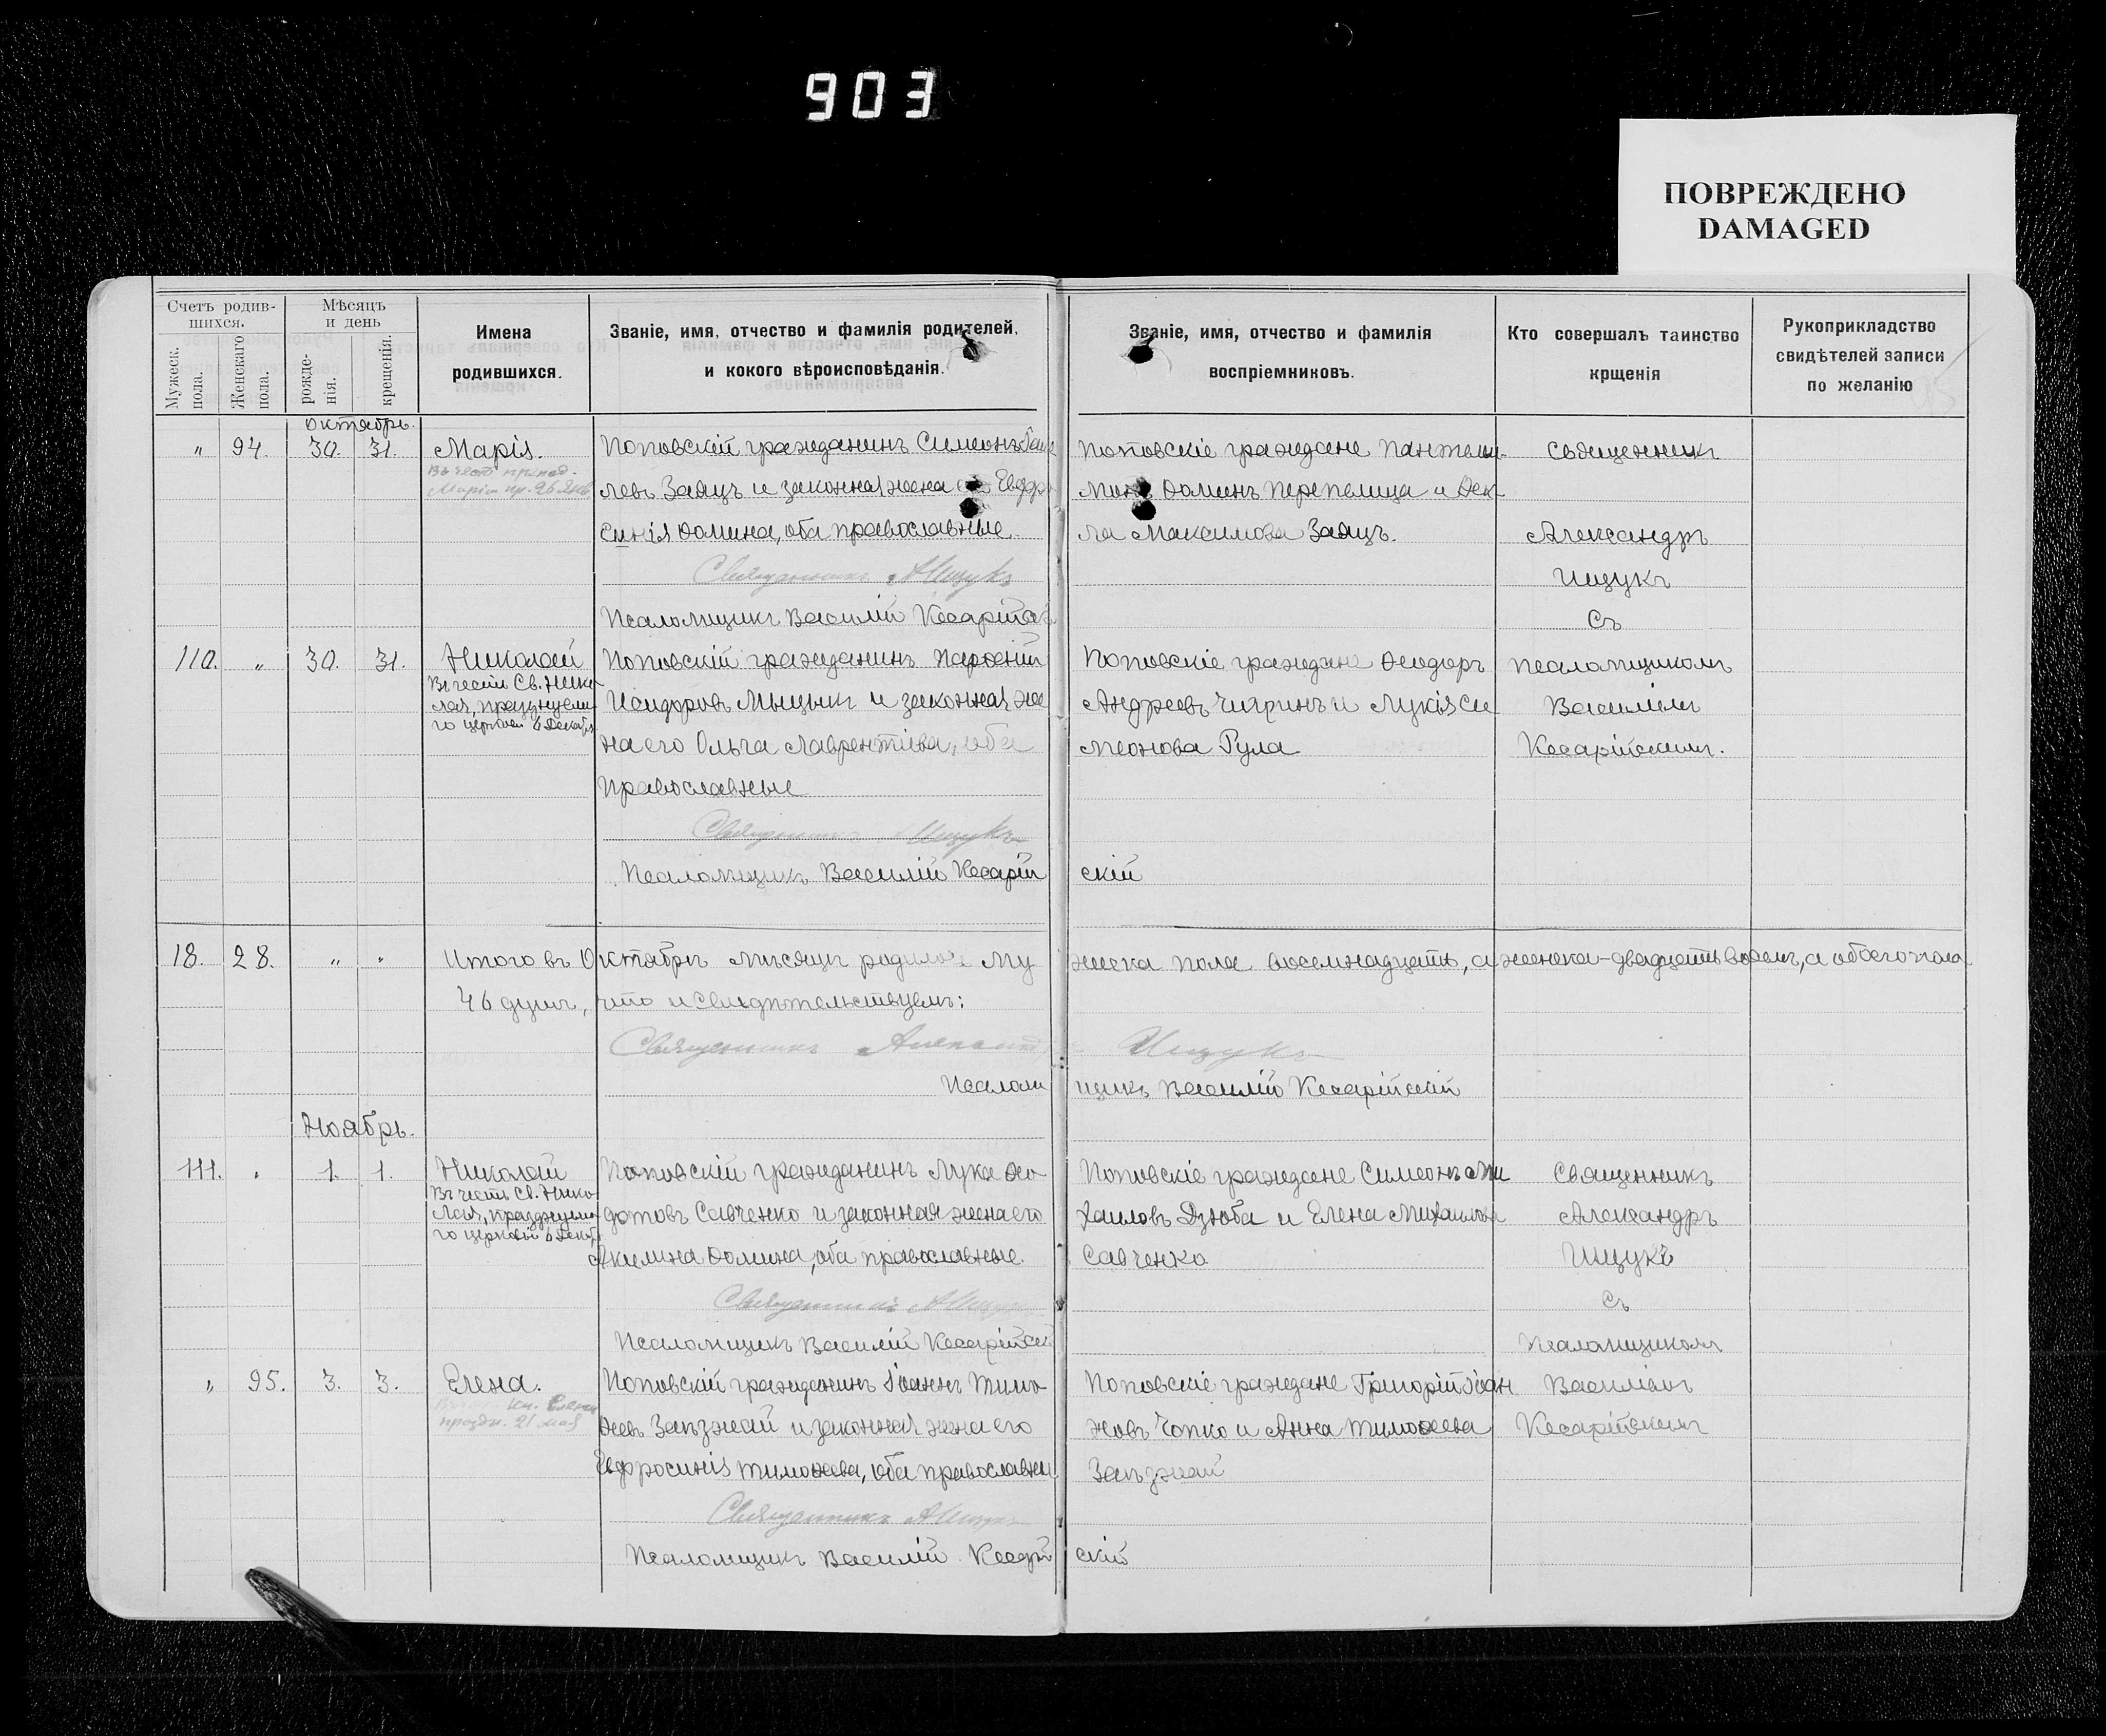 903
ПОВРЕЖДЕНО
DAMAGED
Счетъ родив-
шихся.
Мужеск. пола.
Женскаго пола.
Мѣсяцъ
и день
рожде-
нія.
крещенія.
Имена
родившихся.
Званіе, имя, отчество и фамилія родителей,
и кокого вѣроисповѣданія.
Званіе, имя, отчество и фамилія
воспріемниковъ.
Кто совершалъ таинство
крщенія
Рукоприкладство
свидѣтелей записи
по желанію
Октябрь.
" 94. 30. 31. Марія.
Марія пр. 26 Янв
Поповскій гражданинъ Симеонъ
левъ Заяцъ и законная жена Евфро
синія Ѳомина, оба православные.
Священникъ АИщукъ
Псаломщикъ Василій Кесарійск
Поповскіе граждане Пантелей-
монъ Ѳоминъ Перепелица и Ѳек
ла Максимова Заяцъ.
Священникъ
Александръ
Ищукъ
Съ
псаломщикомъ
Василіем
Кесарійскимъ.
110. " 30. 31. Николай
Въ честь Св. Нико
лая, празднуема
го церковью 6 Декабр
Поповскій гражданинъ Парѳеній
Исидоровъ Мыцыкъ и законная же
на его Ольга Лаврентіева, оба
православные
Священникъ Ищукъ
Псаломщикъ Василій Кесарій
скій
Поповскіе граждане Ѳеодоръ
Андреевъ Чигринъ и Лукія Си
меонова Гула
18. 28. " " Итого въ Октябрѣ мѣсяцѣ родилось му
жеска пола восемнадцать, а женска-двадцать восемь, а обоего пола
46 душъ, что и свидѣтельствуемъ:
Священникъ Александръ Ищукъ
Псалом
щикъ Василій Кесарійскій
Ноябрь.
111. " 1. 1. Николай
Въ честь Св. Нико
лая, празднуема
го церковью 6 Декаб
Поповскій гражданинъ Лука Ѳео
дотовъ Савченко и законная жена его
Акилина Ѳомина, оба православные.
Священникъ АИщукъ
Псаломщикъ Василій Кесарійскі
Поповскіе граждане Симеонъ Ми
хаиловъ Дзюба и Елена Михаилова
Савченко
Священникъ
Александръ
Ищукъ
Съ
Псаломщикомъ
Василіемъ
Кесарійскимъ
" 95. 3. 3. Елена.
Елены
праздн. 21 мая
Поповскій гражданинъ Іоаннъ Тимо
ѳеевъ Заѣзжай и законная жена его
Евфросинія Тимоѳеева, оба православны
Священникъ АИщукъ
Псаломщикъ Василій Кесарій
скій
Поповскіе граждане Григорій Іоан
новъ Чопко и Анна Тимоѳеева
Заѣзжай